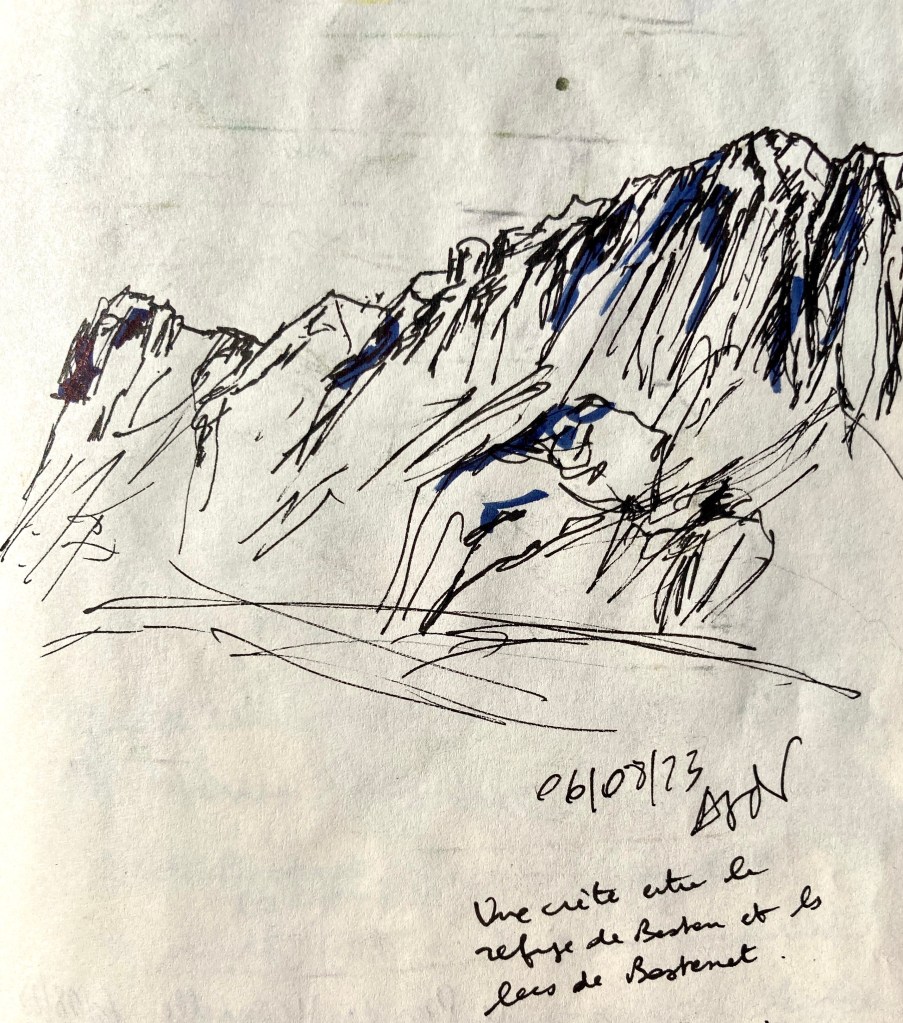 06/08/23
Une crête entre le
refuge de Bastan et les
lacs de Bastanet.